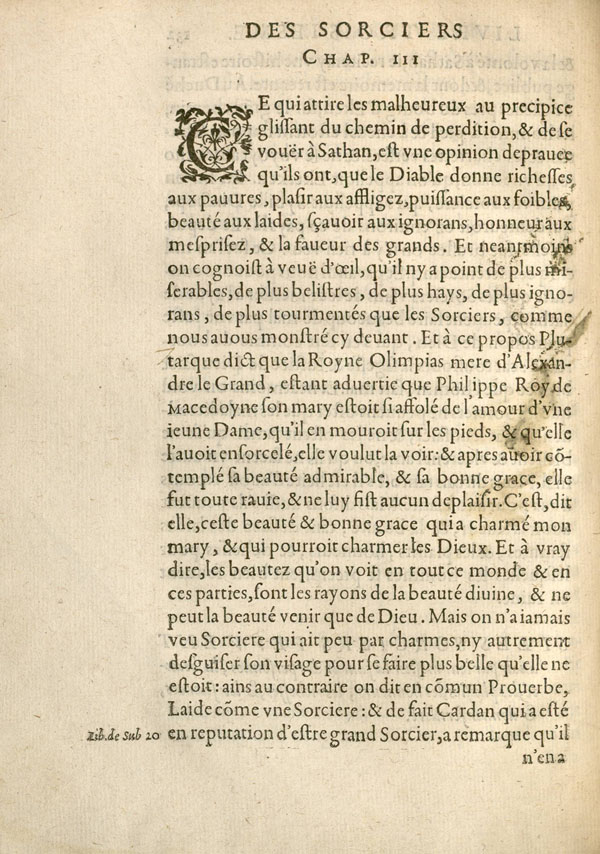 DES SORCIERS
CHAP. III
CE qui attire les malheureux au precipice
gliſſant du chemin de perdition, & de ſe
vouër à Sathan, eſt vne opinion deprauee
qu'ils ont, que le Diable donne richeſſes
aux pauures, plaſir aux affligez, puiſſance aux foibles,
beauté aux laides, ſçauoir aux ignorans, honneur aux
meſpriſez, & la faueur des grands. Et neantmoins
on cognoiſt à veuë d'œil, qu'il ny a point de plus mi-
ſerables, de plus beliſtres, de plus hays, de plus igno-
rans, de plus tourmentés que les Sorciers, comme
nous auous monſtré cy deuant. Et à ce propos Plu-
tarque dict que la Royne Olimpias mere d'Alexan-
dre le Grand, eſtant aduertie que Philippe Roy de
Macedoyne ſon mary eſtoit ſi affolé de l'amour d'vne
ieune Dame, qu'il en mouroit ſur les pieds, & qu'elle
l'auoit enſorcelé, elle voulut la voir: & apres auoir cõ-
templé ſa beauté admirable, & ſa bonne grace, elle
fut toute rauie, & ne luy fiſt aucun deplaiſir. C'eſt, dit
elle, ceſte beauté & bonne grace qui a charmé mon
mary, & qui pourroit charmer les Dieux. Et à vray
dire, les beautez qu'on voit en tout ce monde & en
ces parties, ſont les rayons de la beauté diuine, & ne
peut la beauté venir que de Dieu. Mais on n'a iamais
veu Sorciere qui ait peu par charmes, ny autrement
deſguiſer ſon viſage pour ſe faire plus belle qu'elle ne
eſtoit: ains au contraire on dit en cõmun Prouerbe,
Laide cõme vne Sorciere: & de fait Cardan qui a eſté
Lib. de Sub 20
en reputation d'eſtre grand Sorcier, a remarque qu'il
n'en a